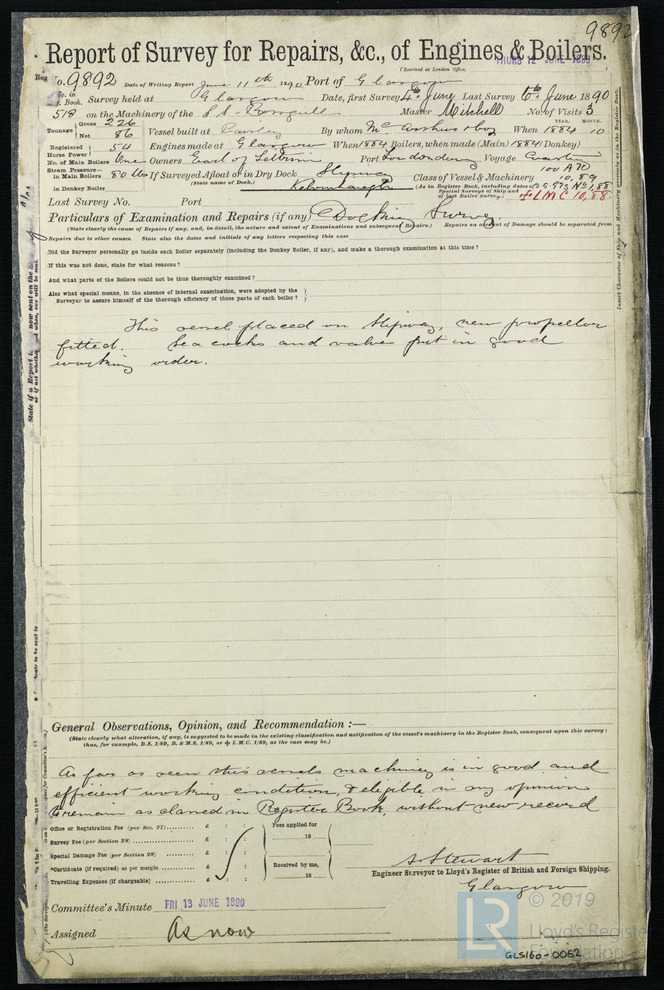 9892
Report of Survey for Repairs, &c., of Engines & Boilers.
(Received at London Office, THURS 12 JUNE 1890
Reg No. 9892 Date of Writing Report June 11th 1890 Port of Glasgow
No. in Book. Survey held at Glasgow Date, first Survey 4th June Last Survey 6th June 1890
518 on the Machinery of the S.S. Master Mitchell No. of Visits 3
Tonnage Gross 226 Net 86 Vessel built at Paisley By whom When 1884 10 YEAR. MONTH.
Registered Horse Power 54 Engines made at Glasgow When 1884 Boilers, when made (Main) 1884 (Donkey)
No. of Main Boilers One Owners Earl of Port Londonderry Voyage Coasting
Steam Pressure in Main Boilers 80 lbs If Surveyed Afloat or in Dry Dock Slipway Class of Vessel & Machinery 100 A 70
in Donkey Boiler (State name of Dock.) Kelvinhaugh (As in Register Book, including dates of Special Surveys of Ship and of last Boiler Survey.) 10.89
S.S. No 1.88
LMC 10,88
Last Survey No. Port
Particulars of Examination and Repairs (if any) Docking Survey
(State clearly the cause of Repairs if any, and, in detail, the nature and extent of Examinations and subsequent Repairs.) Repairs on account of Damage should be separated from
Repairs due to other causes. State also the dates and initials of any letters respecting this case
Did the Surveyor personally go inside each Boiler separately (including the Donkey Boiler, if any), and make a thorough examination at this time?
If this was not done, state for what reasons?
And what parts of the Boilers could not be thus thoroughly examined?
Also what special means, in the absence of internal examination, were adopted by the
Surveyor to assure himself of the thorough efficiency of those parts of each boiler?
This vessel placed on slipway, new propellor
fitted. Sea cocks and valves put in good
working order.
General Observations, Opinion, and Recommendation :—
(State clearly what alteration, if any, is suggested to be made in the existing classification and notification of the vessel's machinery in the Register Book, consequent upon this survey:
thus, for example, B.S. 1/89, B. & M.S. 1/89, or L.M.C. 1/89, as the case may be.)
As far as seen this vessels machinery is in good and
efficient working condition, & eligible in my opinion
to remain as classed in Register Book, without new record
Office or Registration Fee (per Sec. 27) £ : : Fees applied for
Survey Fee (per Section 28) £ : : 18
Special Damage Fee (per Section 28) £ : :
*Certificate (if required) as per margin £ : : Received by me,
Travelling Expenses (if chargeable) £ : : 18
A. Stewart
Engineer Surveyor to Lloyd's Register of British and Foreign Shipping.
Glasgow
Committee's Minute FRI 13 JUNE 1890
Assigned As now
LR © 2019
Lloyd's Register
Foundation
GLS160-0062